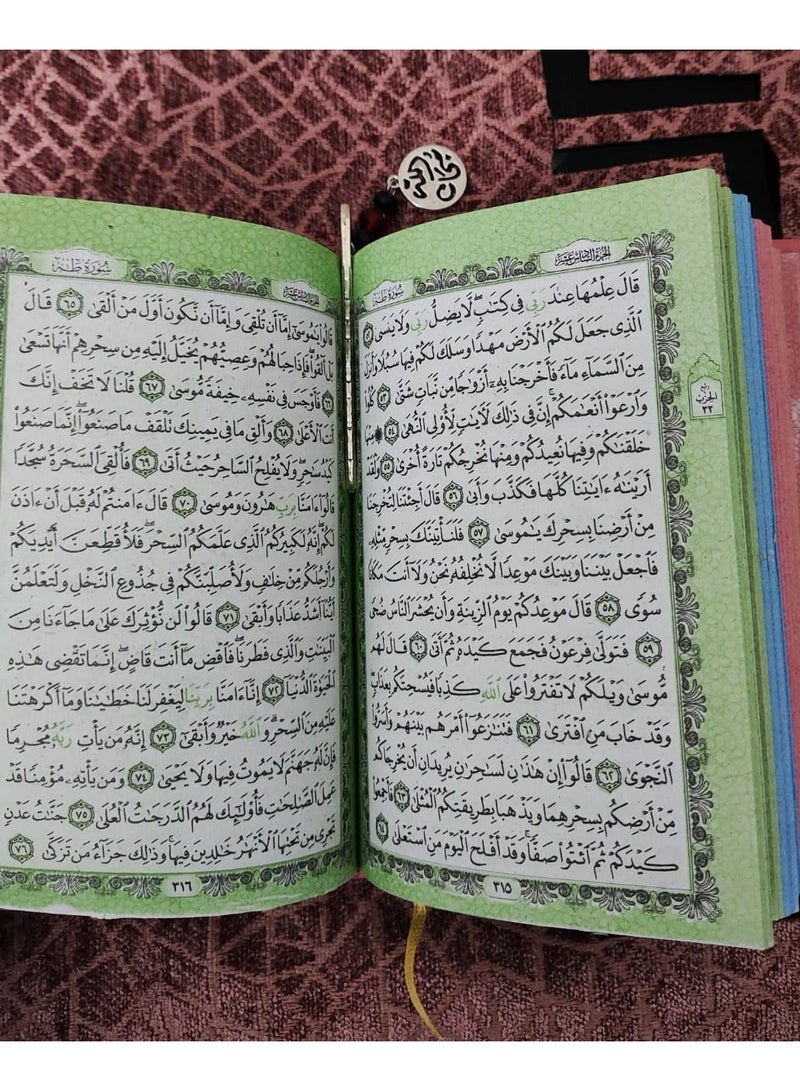 الجزء السادس عشر
سورة طه
قَالَ عِلْمُهَا عِندَ رَبِّى فِى كِتَٰبٍ ۖ لَّا يَضِلُّ رَبِّى وَلَا يَنسَى ٥٢
ٱلَّذِى جَعَلَ لَكُمُ ٱلْأَرْضَ مَهْدًا وَسَلَكَ لَكُمْ فِيهَا سُبُلًا وَأَنزَلَ
مِنَ ٱلسَّمَآءِ مَآءً فَأَخْرَجْنَا بِهِۦٓ أَزْوَٰجًا مِّن نَّبَاتٍ شَتَّىٰ ٥٣ كُلُوا۟
وَٱرْعَوْا۟ أَنْعَٰمَكُمْ ۗ إِنَّ فِى ذَٰلِكَ لَءَايَٰتٍ لِّأُو۟لِى ٱلنُّهَىٰ ٥٤ ۞ مِنْهَا
خَلَقْنَٰكُمْ وَفِيهَا نُعِيدُكُمْ وَمِنْهَا نُخْرِجُكُمْ تَارَةً أُخْرَىٰ ٥٥ وَلَقَدْ
أَرَيْنَٰهُ ءَايَٰتِنَا كُلَّهَا فَكَذَّبَ وَأَبَىٰ ٥٦ قَالَ أَجِئْتَنَا لِتُخْرِجَنَا
مِنْ أَرْضِنَا بِسِحْرِكَ يَٰمُوسَىٰ ٥٧ فَلَنَأْتِيَنَّكَ بِسِحْرٍ مِّثْلِهِۦ
فَٱجْعَلْ بَيْنَنَا وَبَيْنَكَ مَوْعِدًا لَّا نُخْلِفُهُۥ نَحْنُ وَلَآ أَنتَ مَكَانًا
سُوًى ٥٨ قَالَ مَوْعِدُكُمْ يَوْمُ ٱلزِّينَةِ وَأَن يُحْشَرَ ٱلنَّاسُ ضُحًى
٥٩ فَتَوَلَّىٰ فِرْعَوْنُ فَجَمَعَ كَيْدَهُۥ ثُمَّ أَتَىٰ ٦٠ قَالَ لَهُم
مُّوسَىٰ وَيْلَكُمْ لَا تَفْتَرُوا۟ عَلَى ٱللَّهِ كَذِبًا فَيُسْحِتَكُم بِعَذَابٍ ۖ
وَقَدْ خَابَ مَنِ ٱفْتَرَىٰ ٦١ فَتَنَٰزَعُوٓا۟ أَمْرَهُم بَيْنَهُمْ وَأَسَرُّوا۟
ٱلنَّجْوَىٰ ٦٢ قَالُوٓا۟ إِنْ هَٰذَٰنِ لَسَٰحِرَٰنِ يُرِيدَانِ أَن يُخْرِجَاكُم
مِّنْ أَرْضِكُم بِسِحْرِهِمَا وَيَذْهَبَا بِطَرِيقَتِكُمُ ٱلْمُثْلَىٰ ٦٣ فَأَجْمِعُوا۟
كَيْدَكُمْ ثُمَّ ٱئْتُوا۟ صَفًّا ۚ وَقَدْ أَفْلَحَ ٱلْيَوْمَ مَنِ ٱسْتَعْلَىٰ ٦٤
ربع
الحزب
٣٢
٣١٥
الجزء السادس عشر
سورة طه
قَالُوا۟ يَٰمُوسَىٰٓ إِمَّآ أَن تُلْقِىَ وَإِمَّآ أَن نَّكُونَ أَوَّلَ مَنْ أَلْقَىٰ ٦٥ قَالَ
بَلْ أَلْقُوا۟ ۖ فَإِذَا حِبَالُهُمْ وَعِصِيُّهُمْ يُخَيَّلُ إِلَيْهِ مِن سِحْرِهِمْ أَنَّهَا تَسْعَىٰ
٦٦ فَأَوْجَسَ فِى نَفْسِهِۦ خِيفَةً مُّوسَىٰ ٦٧ قُلْنَا لَا تَخَفْ إِنَّكَ
أَنتَ ٱلْأَعْلَىٰ ٦٨ وَأَلْقِ مَا فِى يَمِينِكَ تَلْقَفْ مَا صَنَعُوٓا۟ ۖ إِنَّمَا صَنَعُوا۟
كَيْدُ سَٰحِرٍ ۖ وَلَا يُفْلِحُ ٱلسَّاحِرُ حَيْثُ أَتَىٰ ٦٩ فَأُلْقِىَ ٱلسَّحَرَةُ سُجَّدًا
قَالُوٓا۟ ءَامَنَّا بِرَبِّ هَٰرُونَ وَمُوسَىٰ ٧٠ قَالَ ءَامَنتُمْ لَهُۥ قَبْلَ أَنْ ءَاذَنَ
لَكُمْ ۖ إِنَّهُۥ لَكَبِيرُكُمُ ٱلَّذِى عَلَّمَكُمُ ٱلسِّحْرَ ۖ فَلَأُقَطِّعَنَّ أَيْدِيَكُمْ
وَأَرْجُلَكُم مِّنْ خِلَٰفٍ وَلَأُصَلِّبَنَّكُمْ فِى جُذُوعِ ٱلنَّخْلِ وَلَتَعْلَمُنَّ
أَيُّنَآ أَشَدُّ عَذَابًا وَأَبْقَىٰ ٧١ قَالُوا۟ لَن نُّؤْثِرَكَ عَلَىٰ مَا جَآءَنَا مِنَ
ٱلْبَيِّنَٰتِ وَٱلَّذِى فَطَرَنَا ۖ فَٱقْضِ مَآ أَنتَ قَاضٍ ۖ إِنَّمَا تَقْضِى هَٰذِهِ
ٱلْحَيَوٰةَ ٱلدُّنْيَآ ٧٢ إِنَّآ ءَامَنَّا بِرَبِّنَا لِيَغْفِرَ لَنَا خَطَٰيَٰنَا وَمَآ أَكْرَهْتَنَا
عَلَيْهِ مِنَ ٱلسِّحْرِ ۗ وَٱللَّهُ خَيْرٌ وَأَبْقَىٰٓ ٧٣ إِنَّهُۥ مَن يَأْتِ رَبَّهُۥ مُجْرِمًا
فَإِنَّ لَهُۥ جَهَنَّمَ لَا يَمُوتُ فِيهَا وَلَا يَحْيَىٰ ٧٤ وَمَن يَأْتِهِۦ مُؤْمِنًا قَدْ
عَمِلَ ٱلصَّٰلِحَٰتِ فَأُو۟لَٰٓئِكَ لَهُمُ ٱلدَّرَجَٰتُ ٱلْعُلَىٰ ٧٥ جَنَّٰتُ عَدْنٍ
تَجْرِى مِن تَحْتِهَا ٱلْأَنْهَٰرُ خَٰلِدِينَ فِيهَا ۚ وَذَٰلِكَ جَزَآءُ مَن تَزَكَّىٰ ٧٦
٣١٦